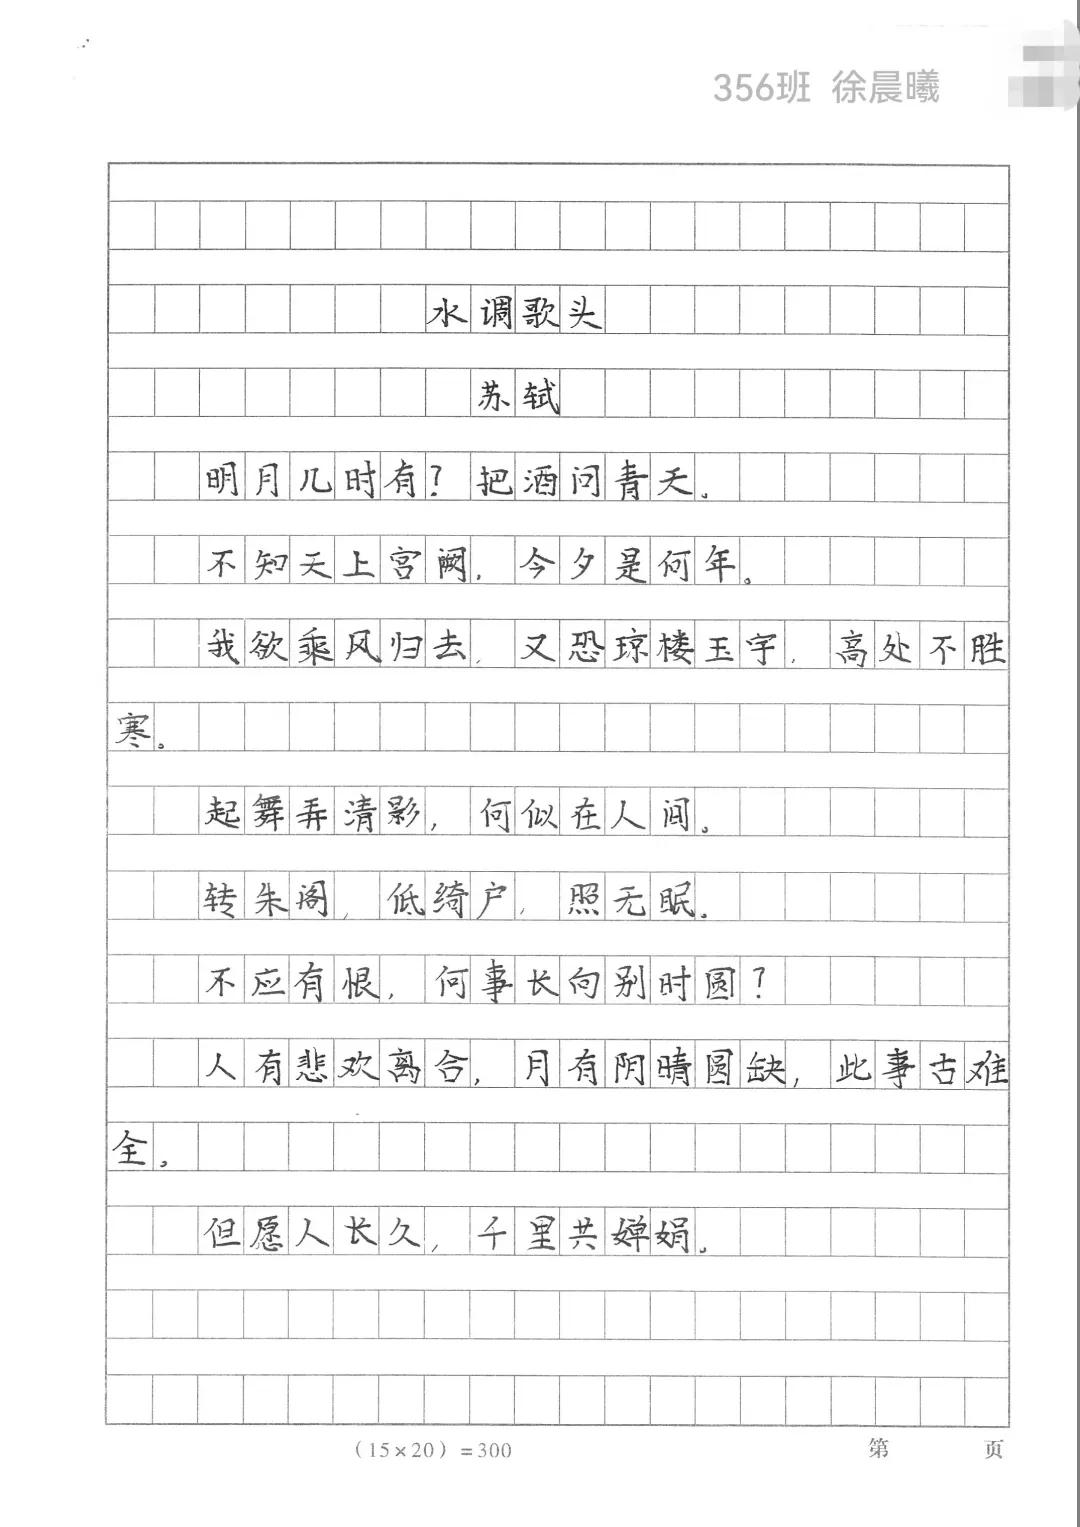 356班 徐晨曦
水调歌头
苏轼
明月几时有？把酒问青天。
不知天上宫阙，今夕是何年。
我欲乘风归去，又恐琼楼玉宇，高处不胜
寒。
起舞弄清影，何似在人间。
转朱阁，低绮户，照无眠。
不应有恨，何事长向别时圆？
人有悲欢离合，月有阴晴圆缺，此事古难
全。
但愿人长久，千里共婵娟。
（15×20）=300 第 页